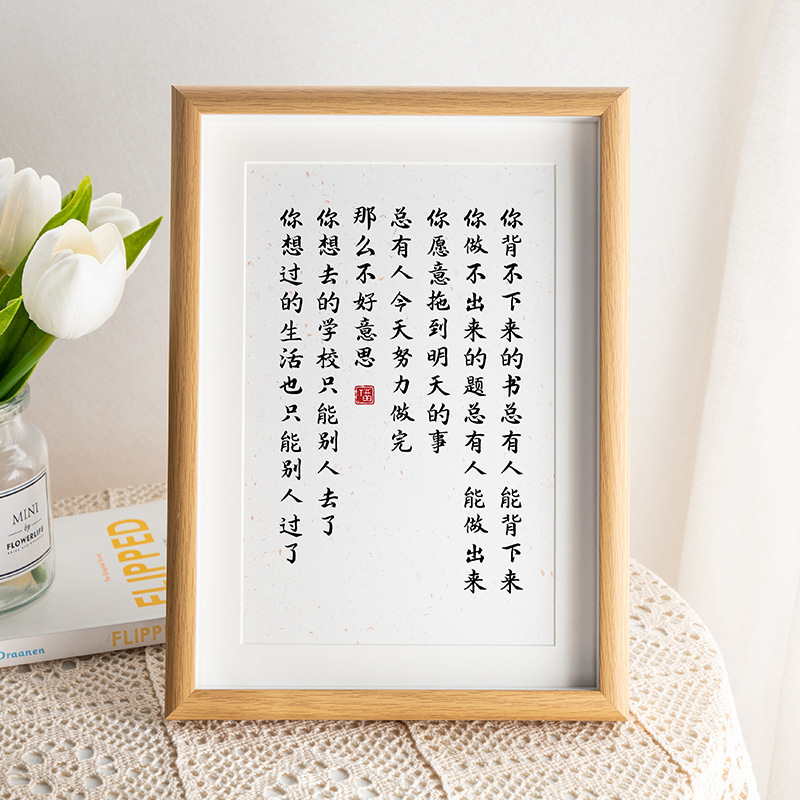 你背不下来的书总有人能背下来
你做不出来的题总有人能做出来
你愿意拖到明天的事
总有人今天努力做完
那么不好意思
福
你想去的学校只能别人去了
你想过的生活也只能别人过了
MINI
by
FLOWERLIFE
FLIPPED
FLIPP
Draanen